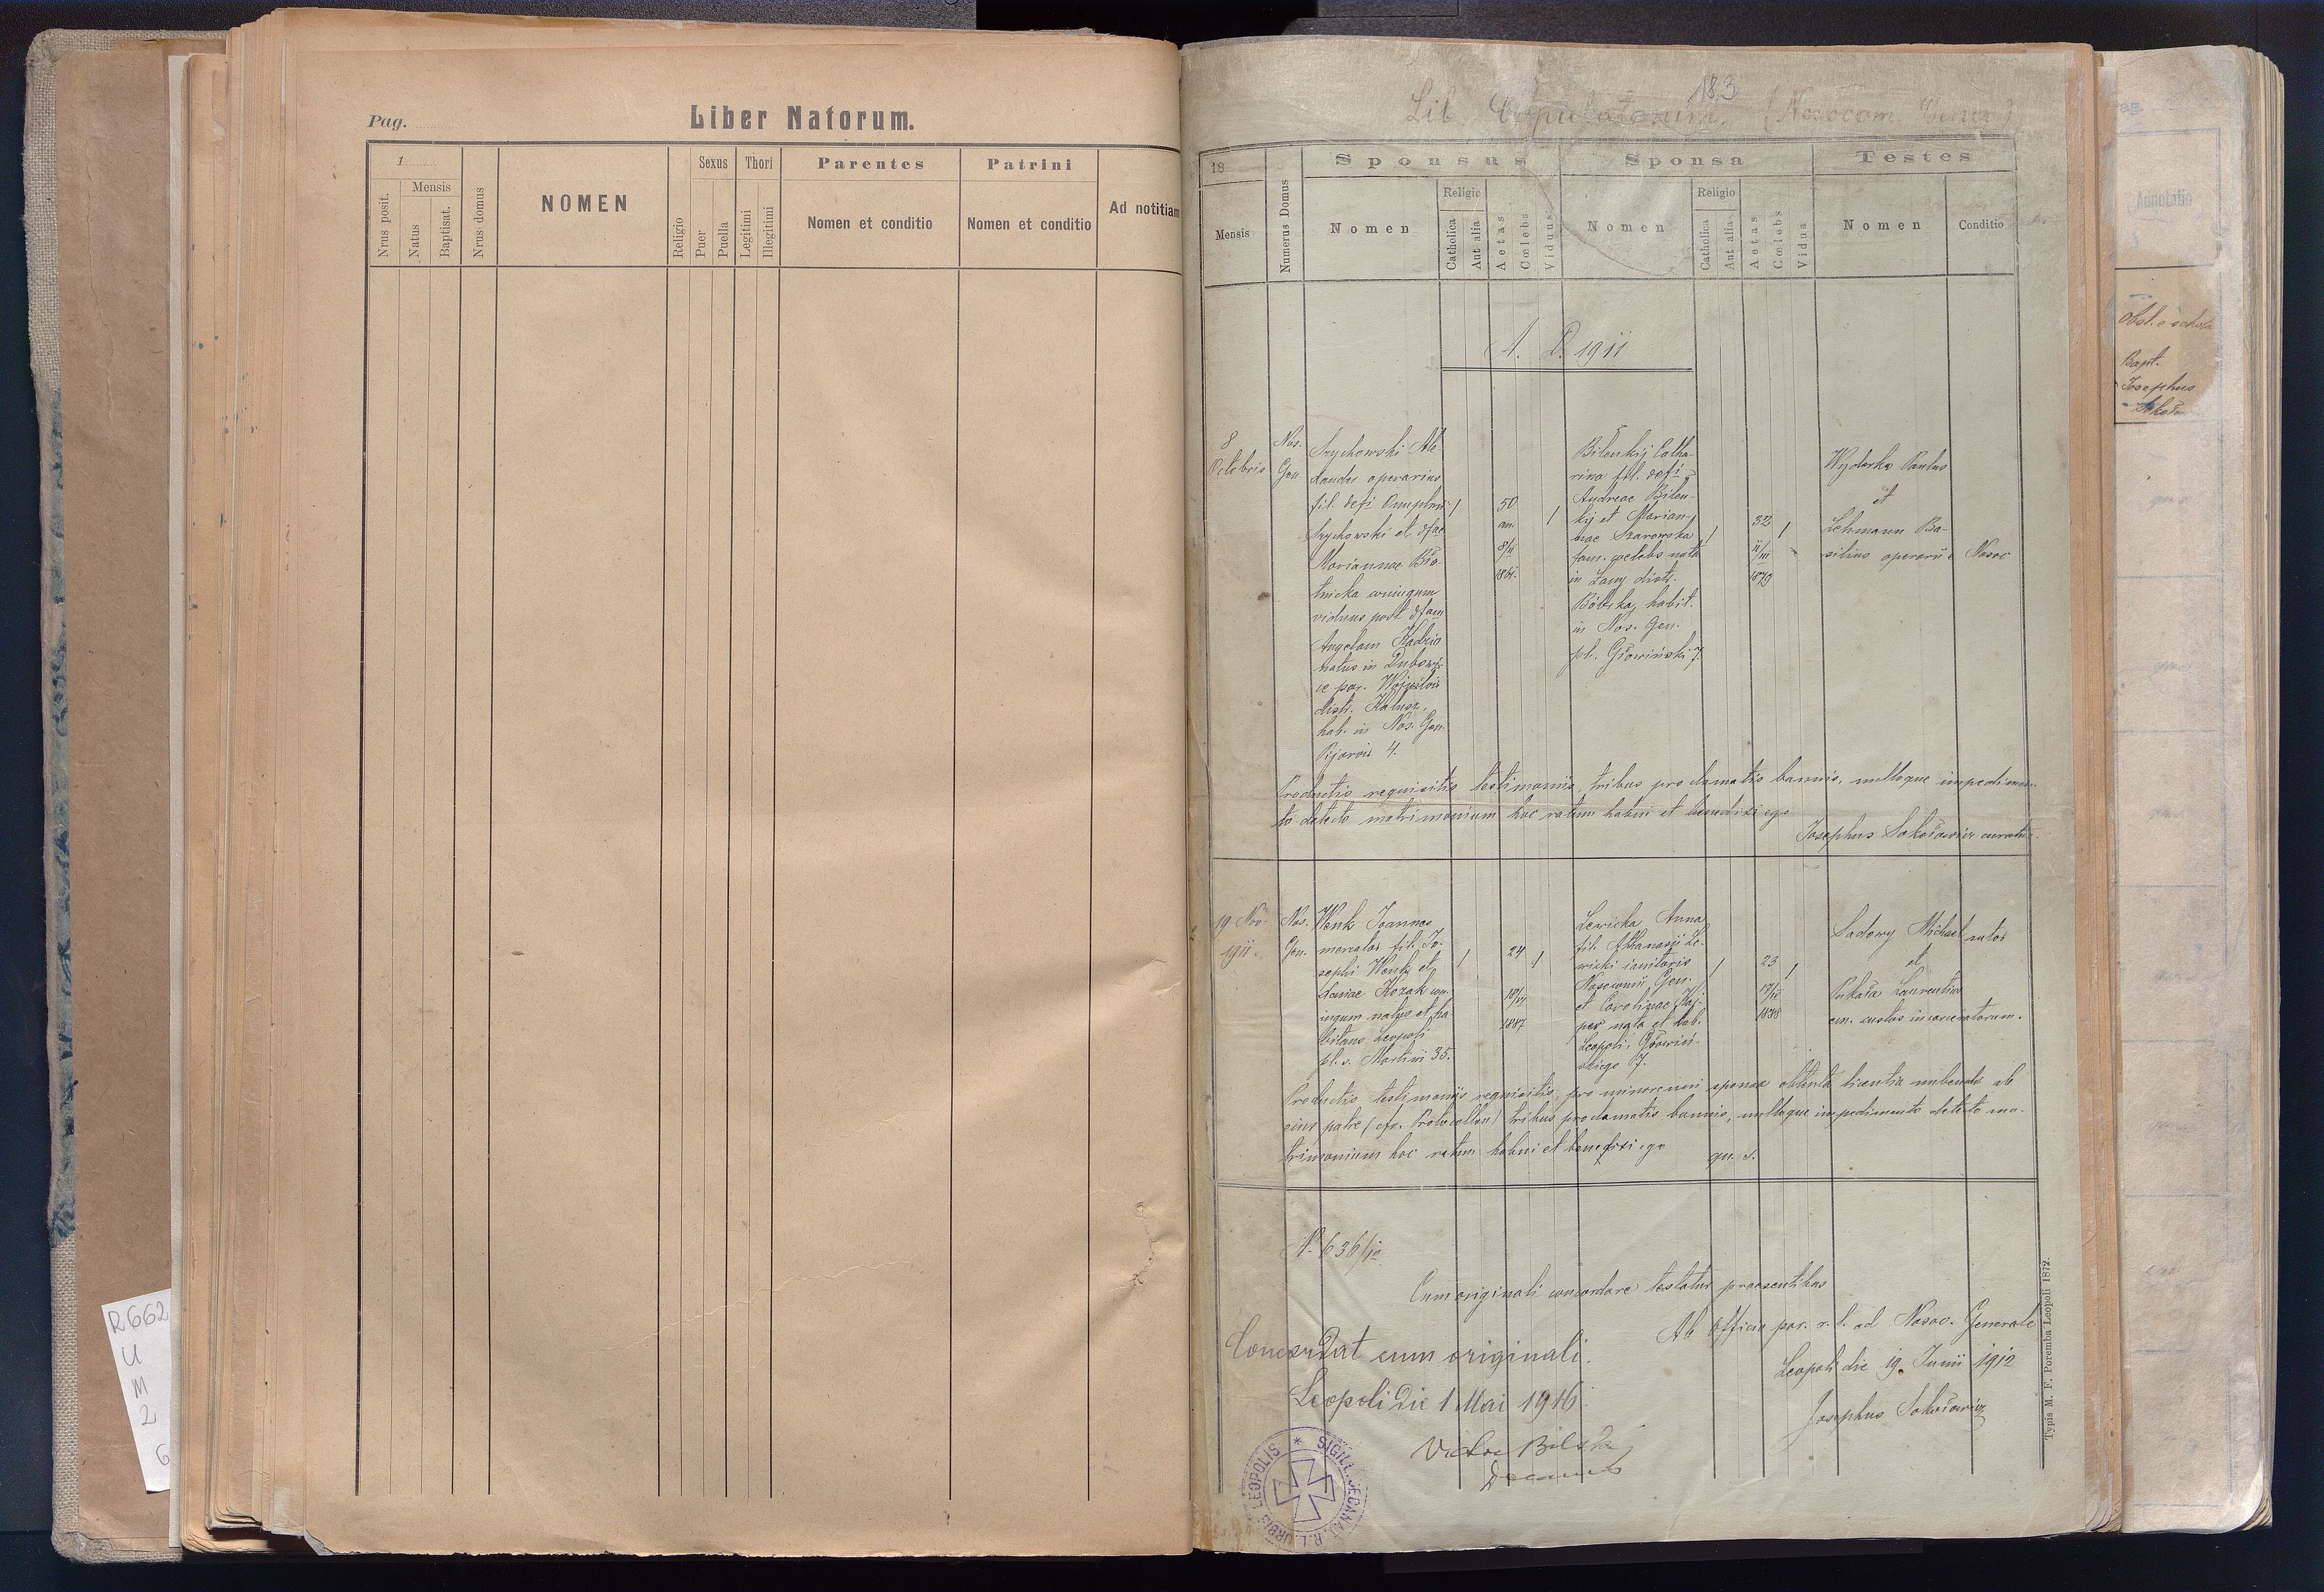 Pag.
Liber Natorum.
1
Mensis
Nrus posit.
Natus
Baptisat.
Nrus domus
NOMEN
Religio
Sexus
Puer
Puella
Thori
Legitimi
Illegitimi
Parentes
Nomen et conditio
Patrini
Nomen et conditio
Ad notitiam
183
Lib. Copulatorum. (Nosocom. Gener.)
18
Mensis
Numerus Domus
Sponsus
Nomen
Religio
Catholica
Aut alia
Aetas
Cœlebs
Viduus
Sponsa
Nomen
Religio
Catholica
Aut alia
Aetas
Cœlebs
Vidua
Testes
Nomen
Conditio
A. D. 1911
8
Octobris
Nos.
Gen.
Srychowski Ale
xander operarius
fil. defi Onuphrii
Srychowski et dfae
Mariannae
coniugum
viduus post dfam
Angelam Kadzio
natus in
ce par.
distr. Kałusz,
hab. in Nos. Gen.
Pijarów 4.
1
50
an.
8/II
1861.
1
Bilenkij Catha-
rina fil. defi
Andreae Bilen-
kij et Marian-
nae Szarowska
fam. coelebs nata
in Łany distr.
Bóbrka, habit.
in Nos. Gen.
pl. Głowiński 7.
1
32
II/III
1879
1
Wyderka Paulus
et
Lehmann Ba-
silius operarii e Nosoc
Productis requisitis testimoniis, tribus proclamatis bannis, nulloque impedimen-
to detecto matrimonium hoc ratum habui et benedixi ego
Josephus Sokołowicz curatus.
19 Nov.
1911.
Nos.
Gen.
Wenk Joannes
mercator fil. Jo-
sephi Wenk et
Xeniae Kozak con-
iugum natus et ha-
bitans Leopoli
pl. s. Martini 35.
1
24
1887
1
Lewicka Anna
fil. Athanasii Le-
wicki ianitoris
Nosocomii Gen.
et Carolinae Kas-
per nata et hab.
Leopoli, Głowiń-
skiego 7.
1
23
1888
1
Sadowy Michael sutor
et
Pukała Laurentius
em. custos incarceratorum.
Productis testimoniis requisitis, pro minorenni sponsa obtenta licentia nubendi ab
eius patre (cfr. Protocollon) tribus proclamatis bannis, nulloque impedimento detecto ma-
trimonium hoc ratum habui et benedixi ego qu. s.
N. 636/12
Cum originali concordare testatur praesentibus
Ab officio par. r. l. ad Nosoc. Generale
Leopoli die 19. Junii 1912
Josephus Sokołowicz
Concordat cum originali.
Leopoli die 1 Mai 1916.
Victor Bilski
Decanus
SIGILL. DECANAT. R. L. URBIS LEOPOLIS
Typis M. F. Poremba Leopoli 1872.
Annotatio
Obst. e schola
Bapt.
Josephus
R662
U
M
2
6